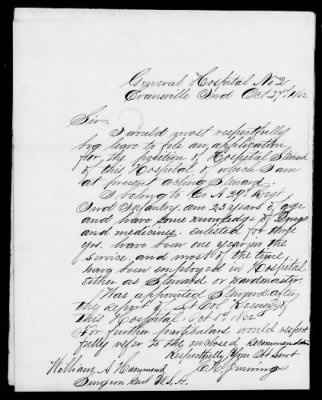 General Hospital No 2
Evansville Ind Oct 27th 1862
Sir
I would most respectfully
beg leave to file an application
for the position of Hospital Steward
of this Hospital of which I am
at present acting Steward.
I belong to Co. A 29th Regt
Ind Infantry, am 23 years of age
and have some knowledge of Drugs
and medicines. enlisted for three
yrs. have been one year in the
service, and most of the time
have been employed in Hospital
either as Steward or wardmaster.
Was appointed Steward
the report of
this Hospital. Oct 1st 1862
For further particulars would respect
fully refer to the enclosed recommendation
Respectfully Your Obt Servt
William A Hammond
Surgeon Genl U.S.A.